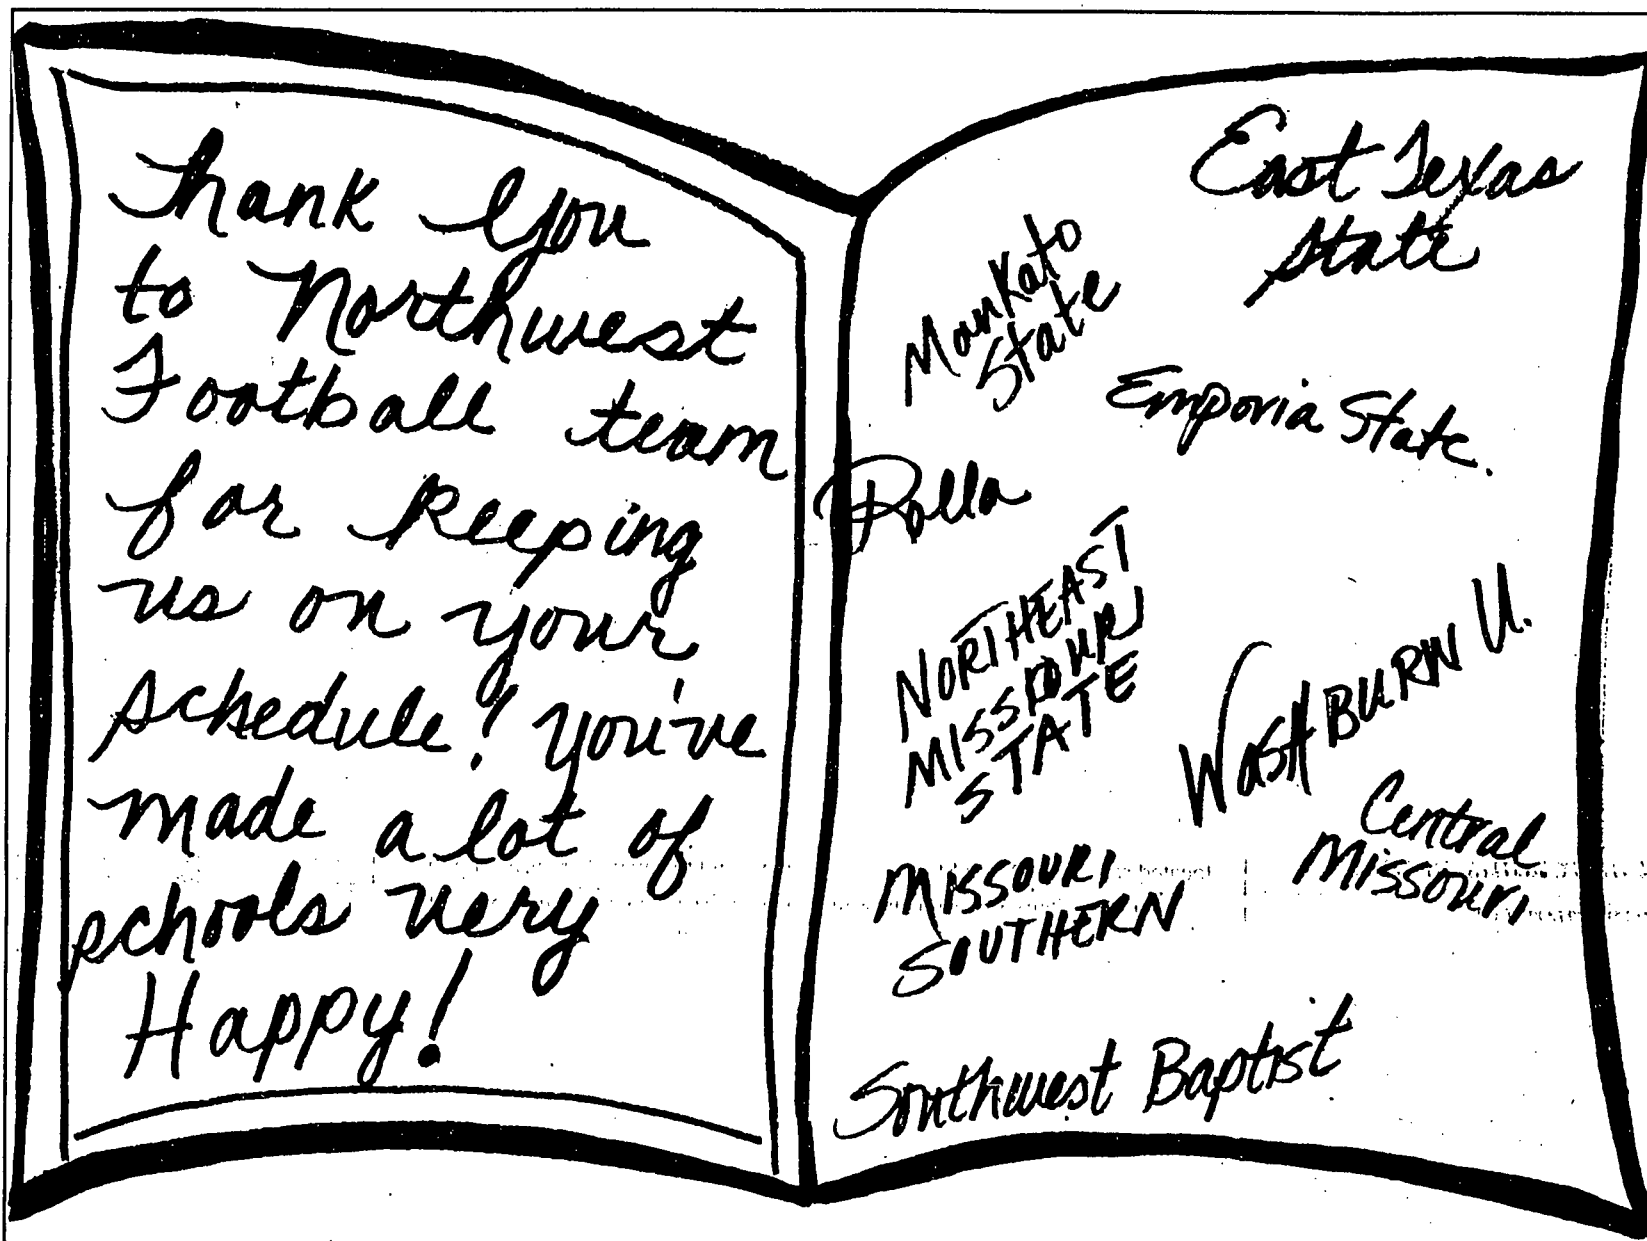 Thank you
to Northwest
Football team
for keeping
us on your
schedule! You've
made a lot of
schools very
Happy!
East Texas
State
Mankato
State
Emporia State.
Rolla
NORTHEAST
MISSOURI
STATE
WASHBURN U.
Central
Missouri
MISSOURI
SOUTHERN
Southwest Baptist